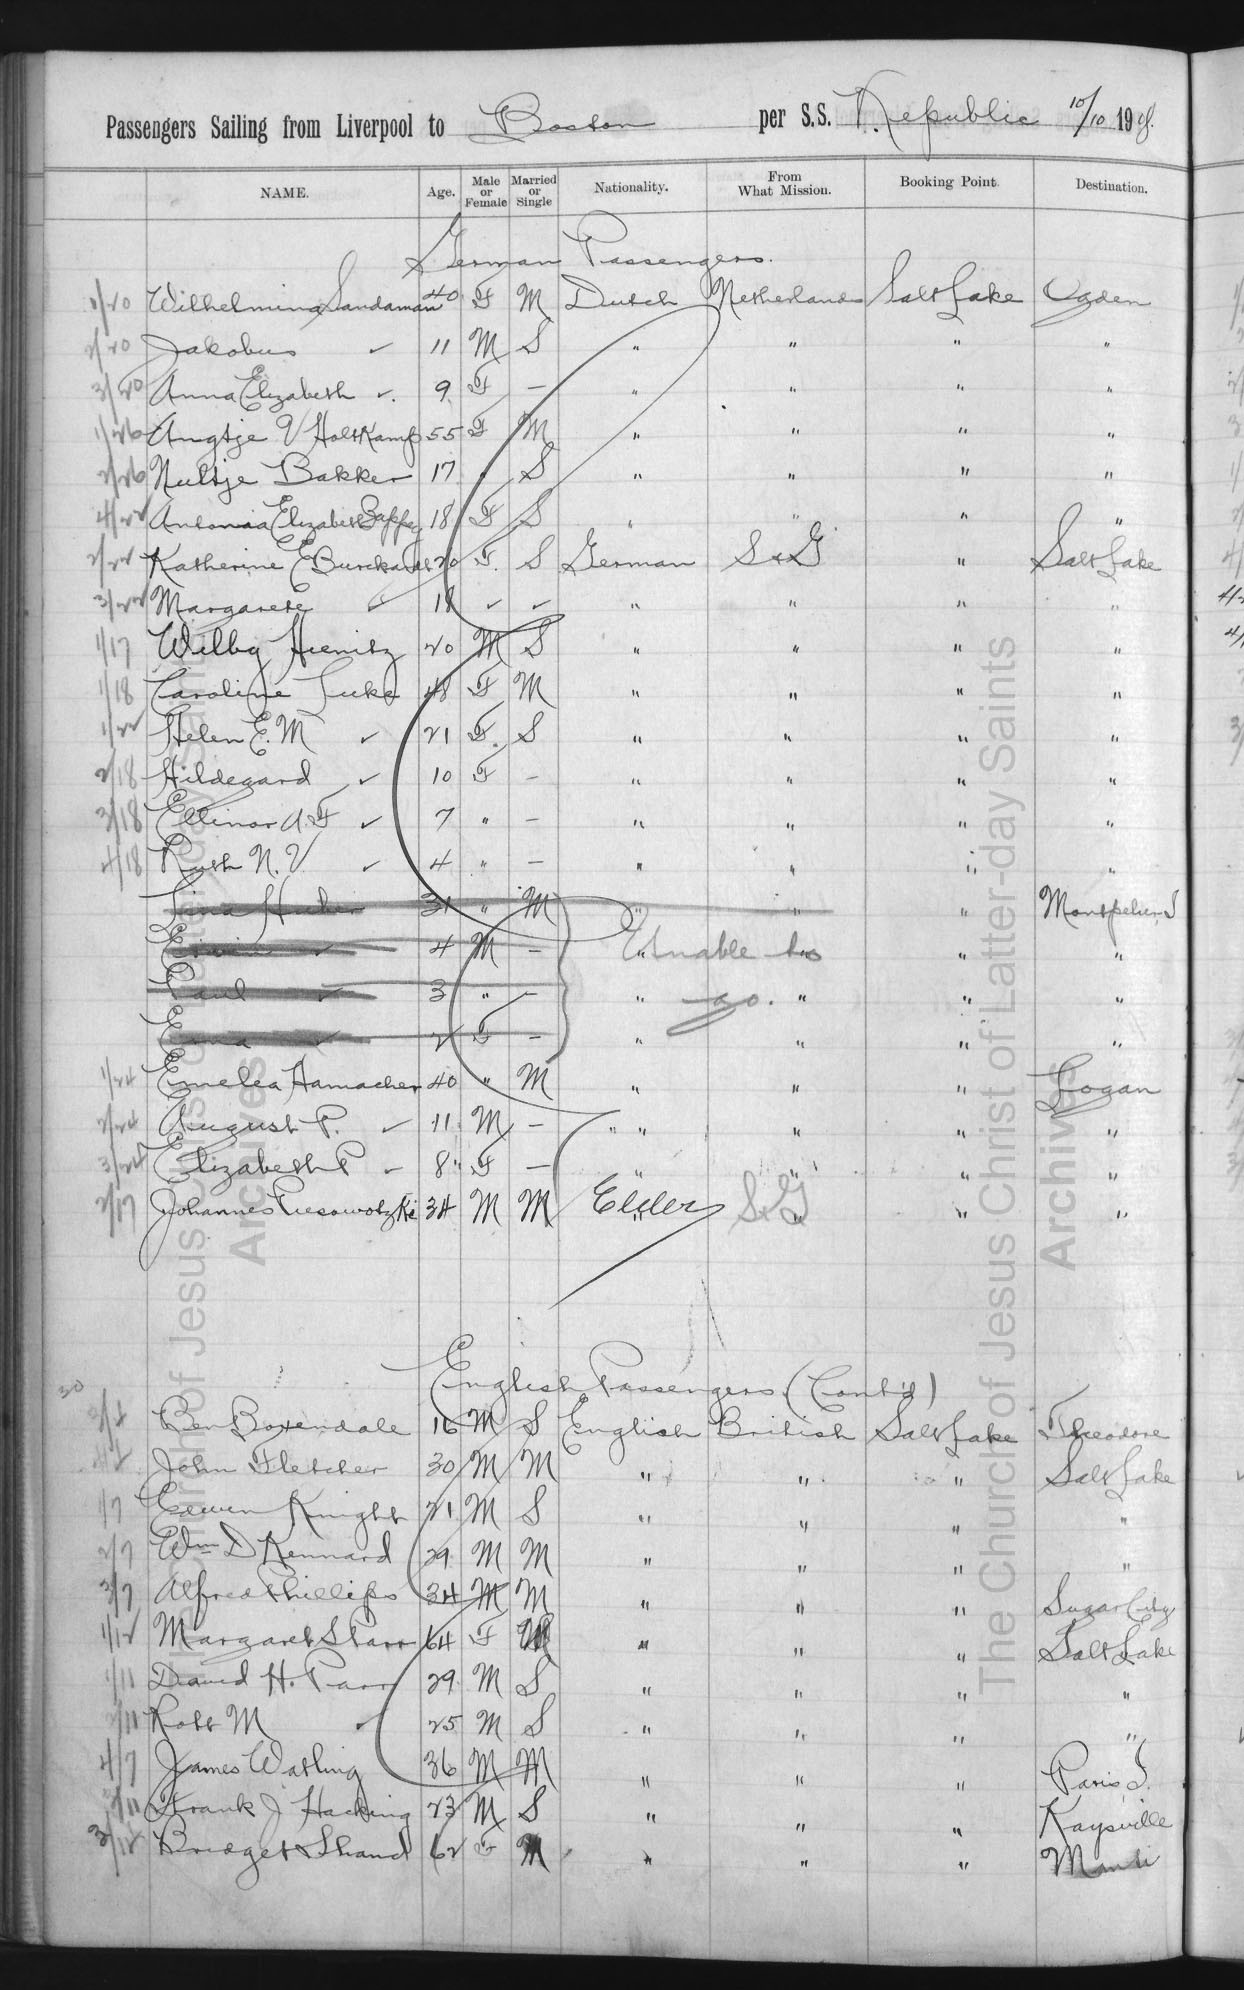 Passengers Sailing from Liverpool to Boston per S.S. Republic 10/10 190
NAME. Age. Male or Female Married or Single Nationality. From What Mission. Booking Point. Destination.
German Passengers.
1/20 Wilhelmina Sandaman 40 F M Dutch Netherlands Salt Lake Ogden
2/20 Jakobus ✓ 11 M S " " " "
3/20 Anna Elizabeth ✓. 9 F — " " " "
1/26 Angtje V Holtkamp 55 F M " " " "
2/26 Nultje Bakker 17 " S " " " "
4/22 Antonia Elizabeth 18 F S " " " "
2/22 Katherine E Burckardt 20 F. S German S & G " Salt Lake
3/22 Margarete ✓ 18 ✓ ✓ " " " "
1/17 Willy Hienitz 20 M S " " " "
1/18 Caroline Luke 48 F M " " " "
1/22 Helen E. M ✓ 21 F. S " " " "
2/18 Hildegard ✓ 10 F — " " " "
3/18 Ellinor A. F ✓ 7 " — " " " "
4/18 Ruth N. V ✓ 4 " — " " " "
Lina Huber 31 " M " " " Montpelier I
✓ 4 M — " Unable to " "
Paul ✓ 3 " — " go. " " "
Erna ✓ 2 F — " " " "
1/24 Emelea Hamacher 40 " M " " " Logan
2/24 August P. ✓ 11 M — " " " " "
3/24 Elizabeth P ✓ 8 F — " " " "
2/17 Johannes 34 M M Elder S & G " "
30
English Passengers (Cont'd)
2/2 Ben Boxendale 16 M S English British Salt Lake Theodore
John Fletcher 30 M M " " " Salt Lake
1/7 Edwin Knight 21 M S " " " "
2/7 Wm D Kennard 29 M M " " " "
3/7 Alfred Phillips 34 M M " " " Sugar City
1/12 Margaret Starr 64 F M " " " Salt Lake
1/11 David H. Parr 29 M S " " " "
2/11 Robt M ✓ 25 M S " " " "
4/7 James Watling 36 M M " " " Paris I.
Frank J Hacking 23 M S " " " Kaysville
3/12 Bridget Shand 62 F M " " " Manti
The Church of Jesus Christ of Latter-day Saints
Archives
The Church of Jesus Christ of Latter-day Saints
Archives